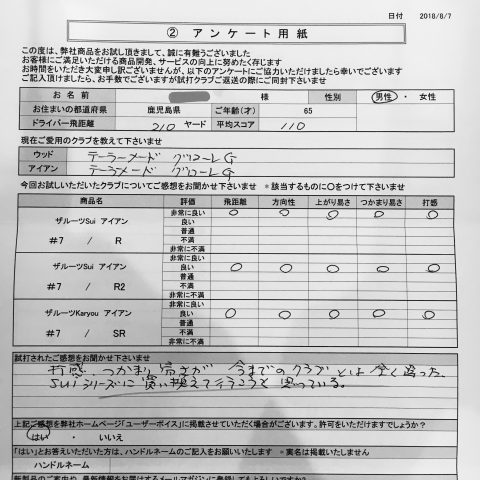 日付　2018/8/7
② アンケート用紙
この度は、弊社商品をお試し頂きまして、誠に有難うございました
お客様にご満足いただける商品開発、サービスの向上に努めたく存じます
お時間をいただき大変申し訳ございませんが、以下のアンケートにご協力いただけましたら幸いでございます
ご記入頂けましたら、お手数でございますが試打クラブご返送の際にご同封下さいませ
お 名 前　様　性別　男性 ・ 女性
お住まいの都道府県　鹿児島県　ご年齢(才)　65
ドライバー飛距離　210 ヤード　平均スコア　110
現在ご愛用のクラブを教えて下さいませ
ウッド　テーラーメード グローレG
アイアン　テーラーメード グローレG
今回お試しいただいたクラブについてご感想をお聞かせ下さいませ　＊該当するものに〇をつけて下さいませ
商品名　評価　飛距離　方向性　上がり易さ　つかまり易さ　打感
ザルーツSui アイアン
#7　/　R
非常に良い　〇　〇　〇　〇　〇
良い
普通
不満
非常に不満
ザルーツSui アイアン
#7　/　R2
非常に良い
良い　〇　〇　〇　〇　〇
普通
不満
非常に不満
ザルーツKaryou アイアン
#7　/　SR
非常に良い
良い　〇　〇　〇　〇　〇
普通
不満
非常に不満
試打されたご感想をお聞かせ下さいませ
打感、つかまり易さが 今までのクラブとは全く違った。
SUIシリーズに買い換えて行こうと思っている。
上記ご感想を弊社ホームページ「ユーザーボイス」に掲載させていただく場合がございます。許可をいただけますでしょうか？
はい　・　いいえ
「はい」とお答えいただいた方は、ハンドルネームのご記入をお願いします　＊実名は掲載いたしません
ハンドルネーム
新製品のご案内や、最新情報をお届けするメールマガジンに登録してもよろしいですか？